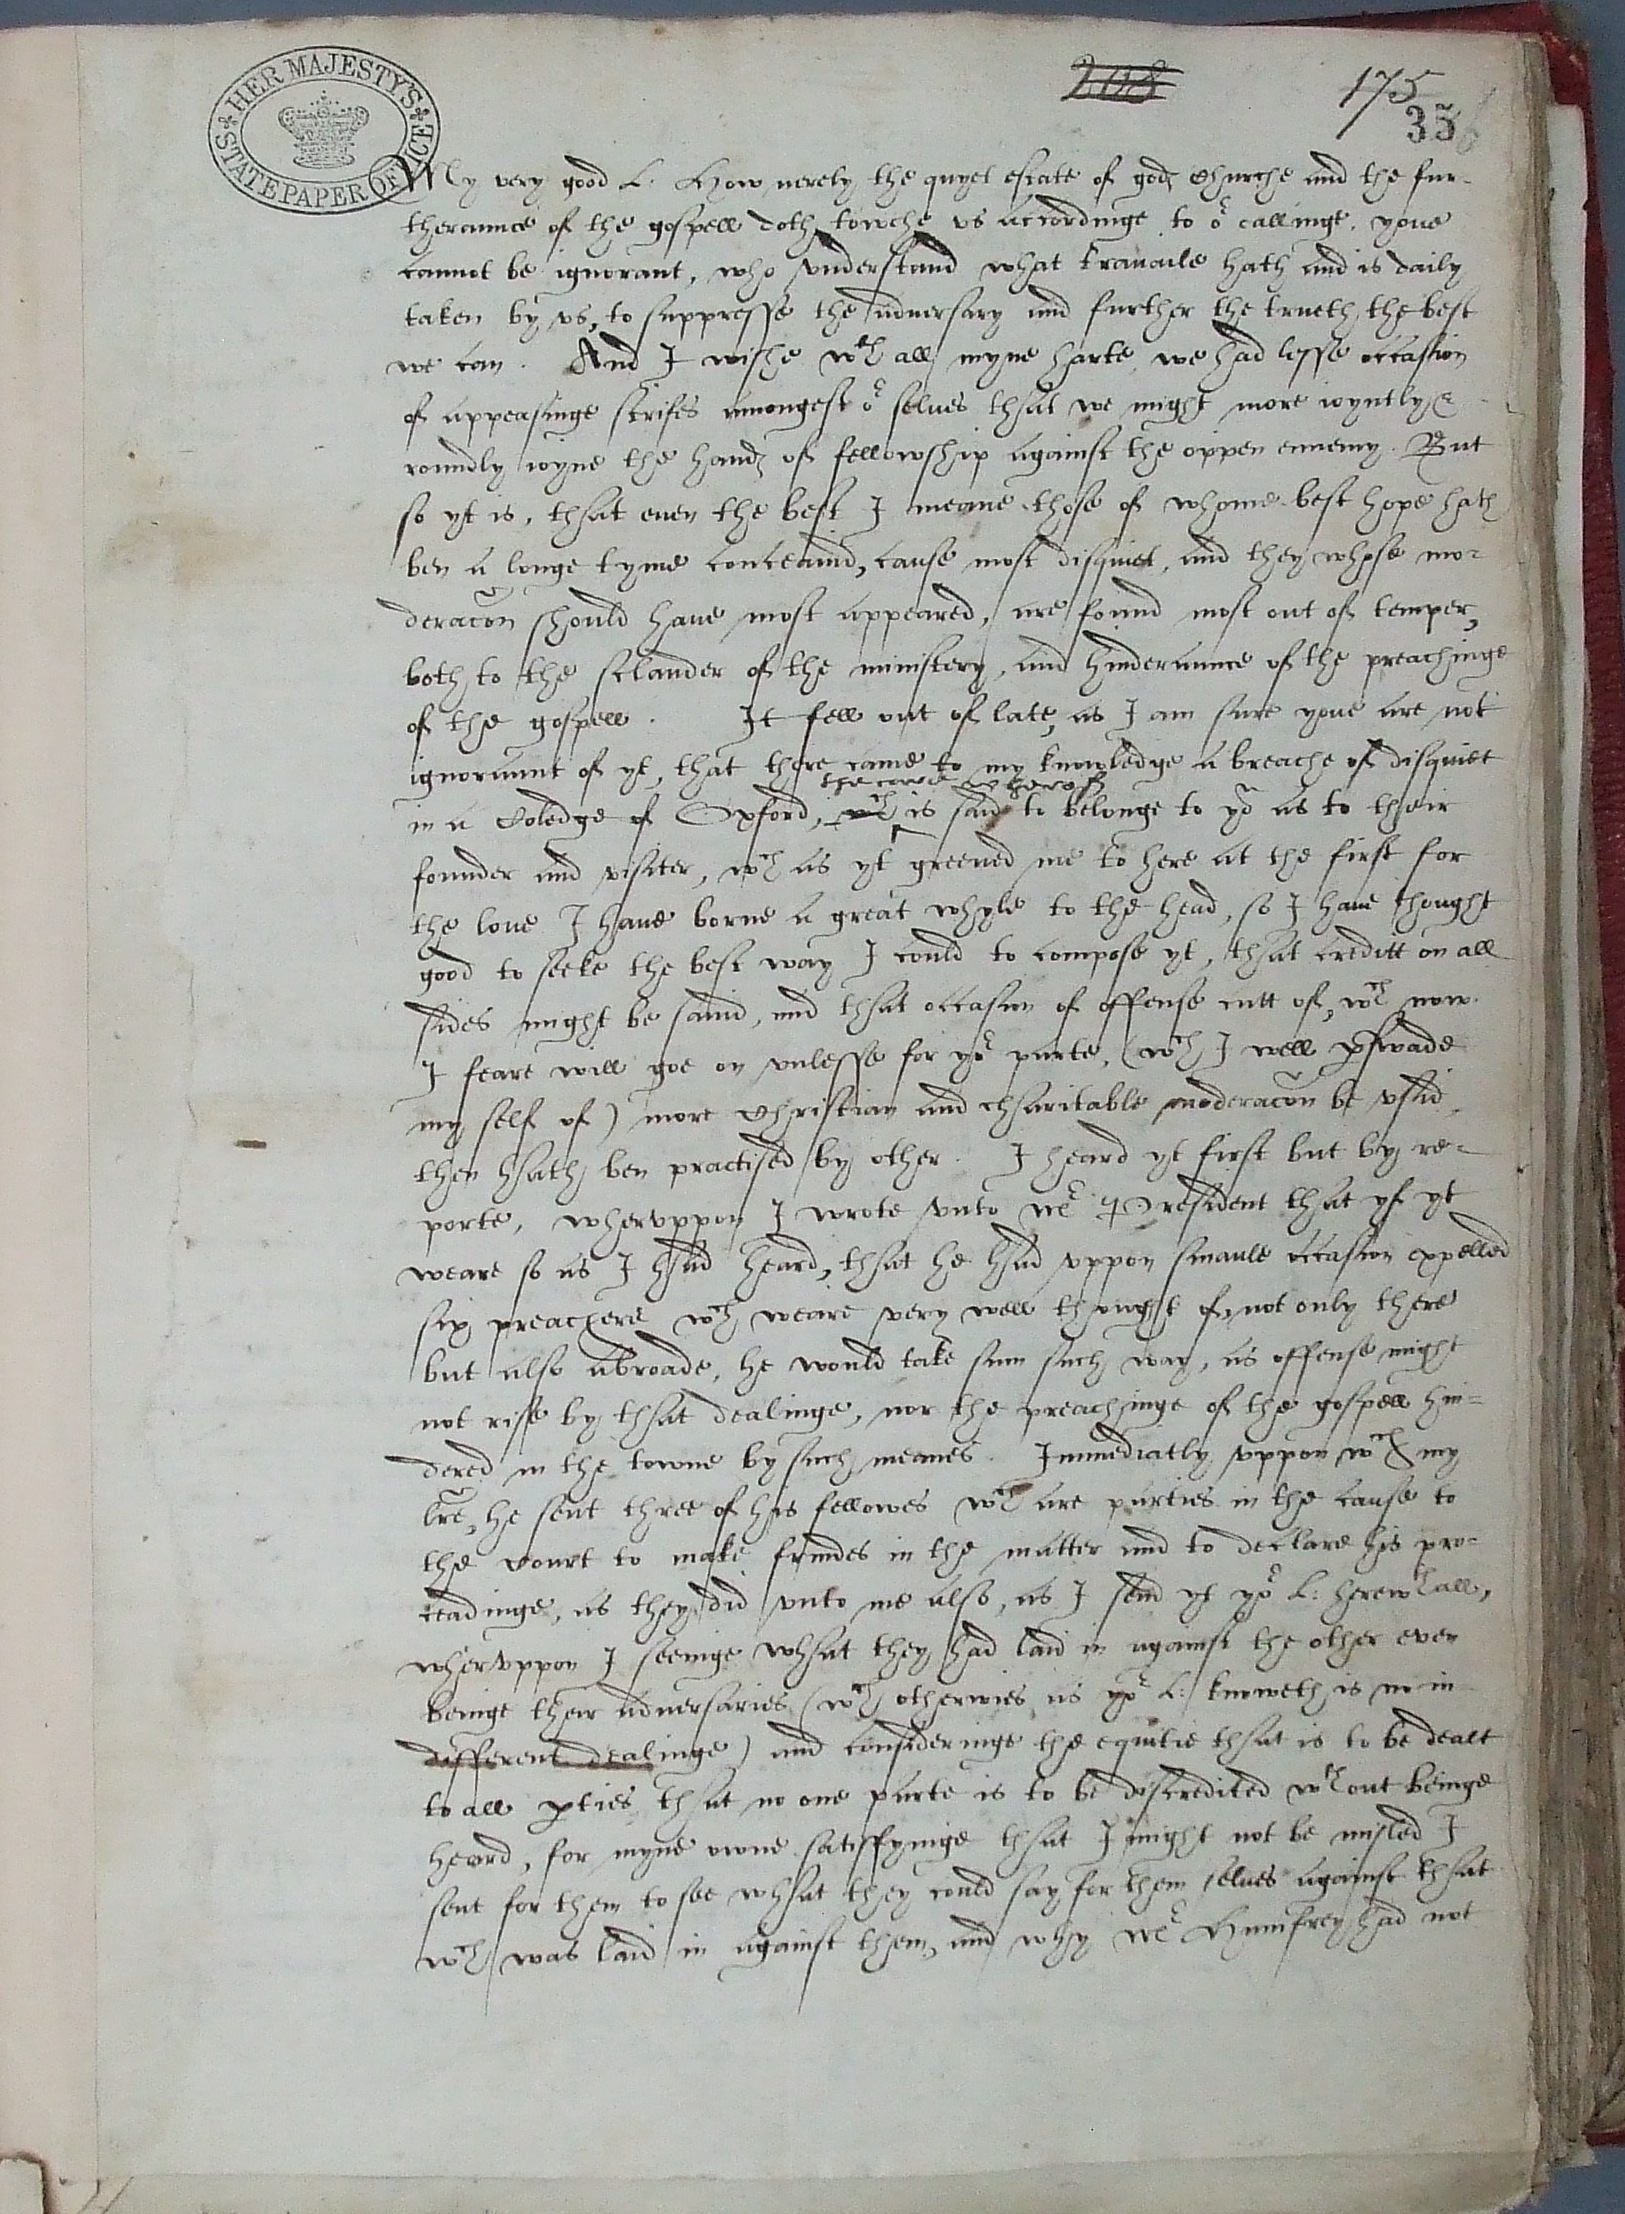 HER MAJESTY'S
STATE PAPER OFFICE
208
175
35
My very good L. How nerely the quyet estate of gods Churche and the fur-
theraunce of the gospell doth towche vs accordinge to or callinge, youe
cannot be ignorant, who vnderstand what trauaile hath and is daily
taken by vs, to suppresse the aduersary and further the trueth, the best
we can. And I wishe wth all myne harte we had lesse occasion
of appeasinge strifes amongest or selues that we might more ioyntly &
roundly ioyne the hands of fellowship against the oppen ennemy. But
so yt is, that euen the best I meane those of whome best hope hath
ben a longe tyme conceaued, cause most disquiet, and they whose mo-
deracon should haue most appeared, are found most out of temper,
both to the sclander of the ministery, and hinderaunce of the preachinge
of the gospell. It fell out of late, as I am sure youe are not
ignoraunt of yt, that there came to my knowledge a breache of disquiet
the care wherof
in a Coledge of Oxford, wch is said to belonge to yo as to their
founder and visiter, wch as yt greeued me to here at the first for
the loue I haue borne a great whyle to the head, so I haue thought
good to seeke the best way I could to compose yt, that creditt on all
sides might be saued, and that occasion of offense cutt of, wch now
I feare will goe on vnlesse for yor parte, (wch I well pswade
my self of) more Christian and charitable moderacon be vsed,
then hath ben practised by other. I heard yt first but by re-
porte, wheruppon I wrote vnto mr President that yf yt
weare so as I had heard, that he had vppon smaule occasion expelled
six preachers wch weare very well thought of, not only there
but also abroade, he would take sum such way, as offense might
not rise by that dealinge, nor the preachinge of the gospell hin-
dered in the towne by such meanes. Immediatly vppon wch my
lre, he sent three of his fellowes wch are parties in the cause to
the Court to make frindes in the matter and to declare his pro-
ceadinge, as they did vnto me also, as I send yt yor L: herewthall,
wheruppon I seeinge what they had laid in against the other even
beinge their aduersaries (wch otherwies as yor L: knoweth is no in-
different dealinge) and consideringe the equitie that is to be dealt
to all pties that no one parte is to be discredited wthout beinge
heard, for myne owne satisfyinge that I might not be misled I
sent for them to see what they could say for them selues against that
wch was laid in against them, and why mr Humfrey had not